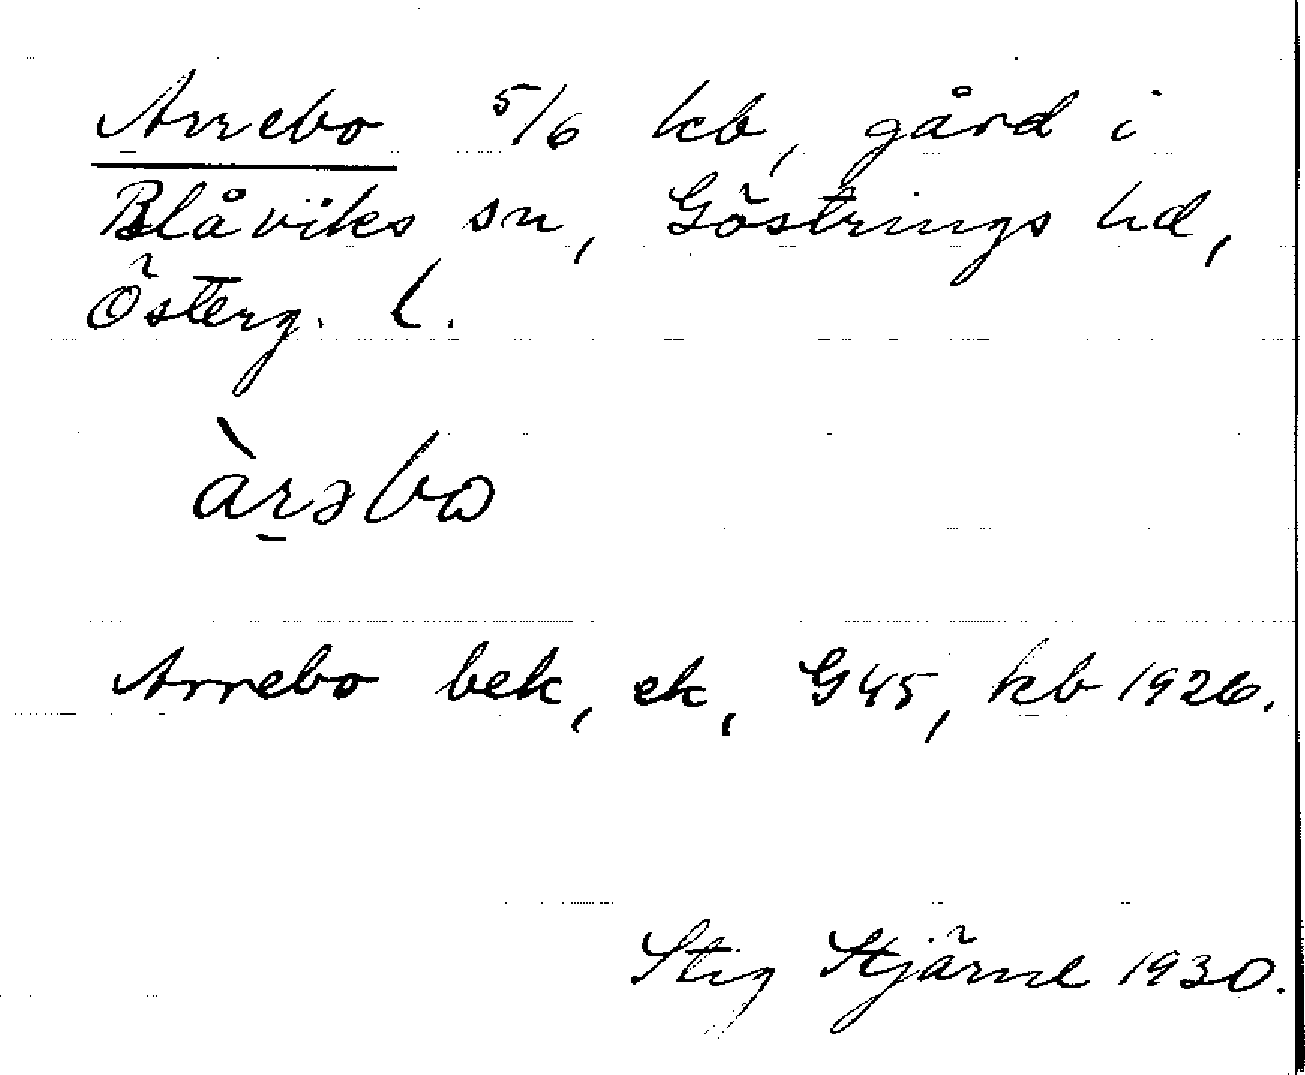 Arrebo 5/6 kb, gård i
Blåviks sn, Göstrings hd,
Österg. l.
àrəbω
Arrebo bek, ek, G45, kb 1926.
Stig Stjärne 1930.